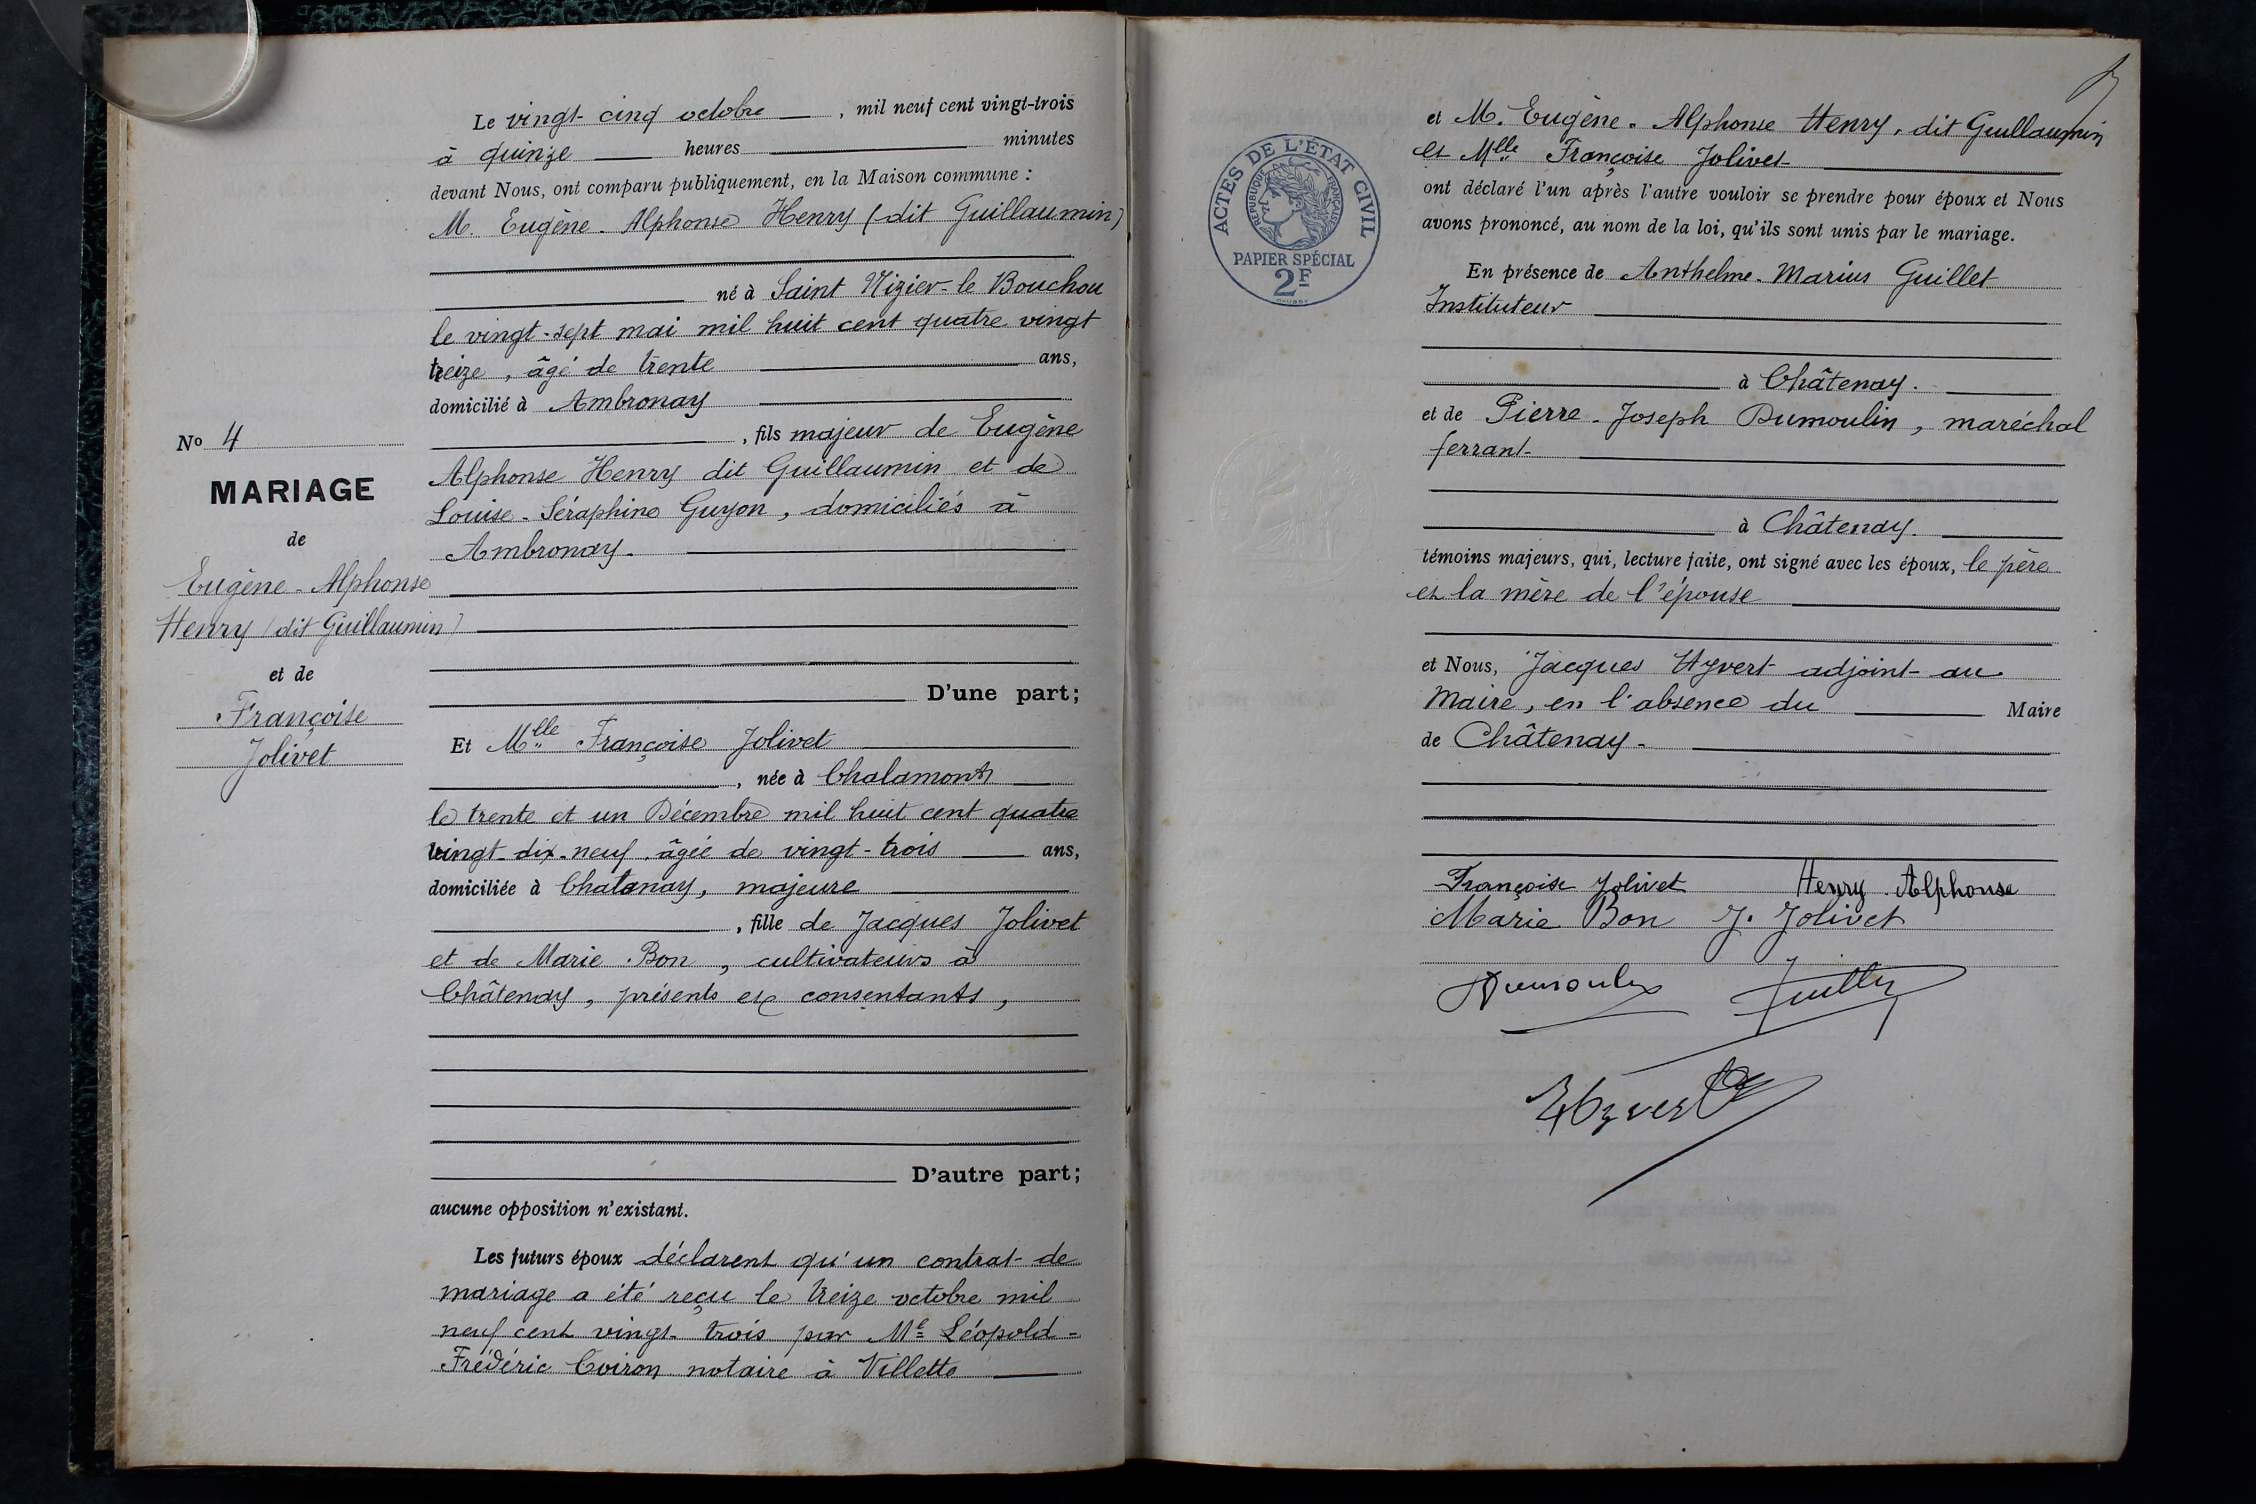 Le vingt-cinq octobre, mil neuf cent vingt-trois
à quinze heures minutes
devant Nous, ont comparu publiquement, en la Maison commune :
M. Eugène-Alphonse Henry (dit Guillaumin)
né à Saint Nizier-le Bouchou
le vingt-sept mai mil huit cent quatre vingt
treize, âgé de trente ans,
domicilié à Ambronay
, fils majeur de Eugène
Alphonse Henry dit Guillaumin et de
Louise-Séraphine Guyon, domiciliés à
Ambronay.
No 4
MARIAGE
de
Eugène-Alphonse
Henry (dit Guillaumin)
et de
Françoise
Jolivet
D'une part;
Et Mlle Françoise Jolivet
, née à Chalamont
le trente et un Décembre mil huit cent quatre
vingt-dix-neuf, âgée de vingt-trois ans,
domiciliée à Chatenay, majeure
, fille de Jacques Jolivet
et de Marie Bon, cultivateurs à
Châtenay, présents et consentants,
D'autre part;
aucune opposition n'existant.
Les futurs époux déclarent qu'un contrat de
mariage a été reçu le treize octobre mil
neuf cent vingt-trois par Me Léopold-
Frédéric Coiron notaire à Villette
ACTES DE L'ÉTAT CIVIL
REPUBLIQUE FRANÇAISE
PAPIER SPÉCIAL
2F
et M. Eugène-Alphonse Henry, dit Guillaumin
et Mlle Françoise Jolivet
ont déclaré l'un après l'autre vouloir se prendre pour époux et Nous
avons prononcé, au nom de la loi, qu'ils sont unis par le mariage.
En présence de Anthelme-Marius Guillet
Instituteur
à Châtenay.
et de Pierre-Joseph Dumoulin, maréchal
ferrant
à Châtenay.
témoins majeurs, qui, lecture faite, ont signé avec les époux, le père
et la mère de l'épouse
et Nous, Jacques Hyvert adjoint au
Maire, en l'absence du Maire
de Châtenay.
Françoise Jolivet Henry Alphonse
Marie Bon J. Jolivet
Dumoulin Guillet
Hyvert